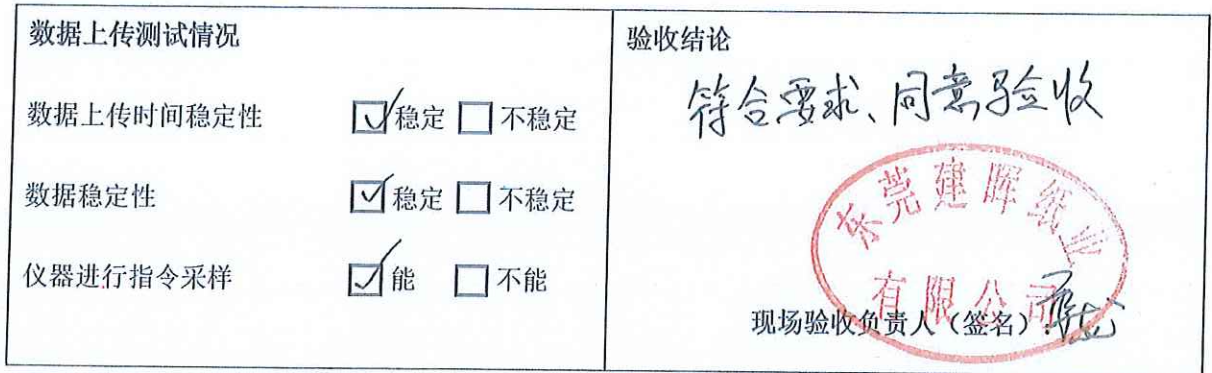 数据上传测试情况
数据上传时间稳定性 ☑稳定 □不稳定
数据稳定性 ☑稳定 □不稳定
仪器进行指令采样 ☑能 □不能
验收结论
符合要求、同意验收
东莞建晖纸业
有限公司
现场验收负责人（签名）: